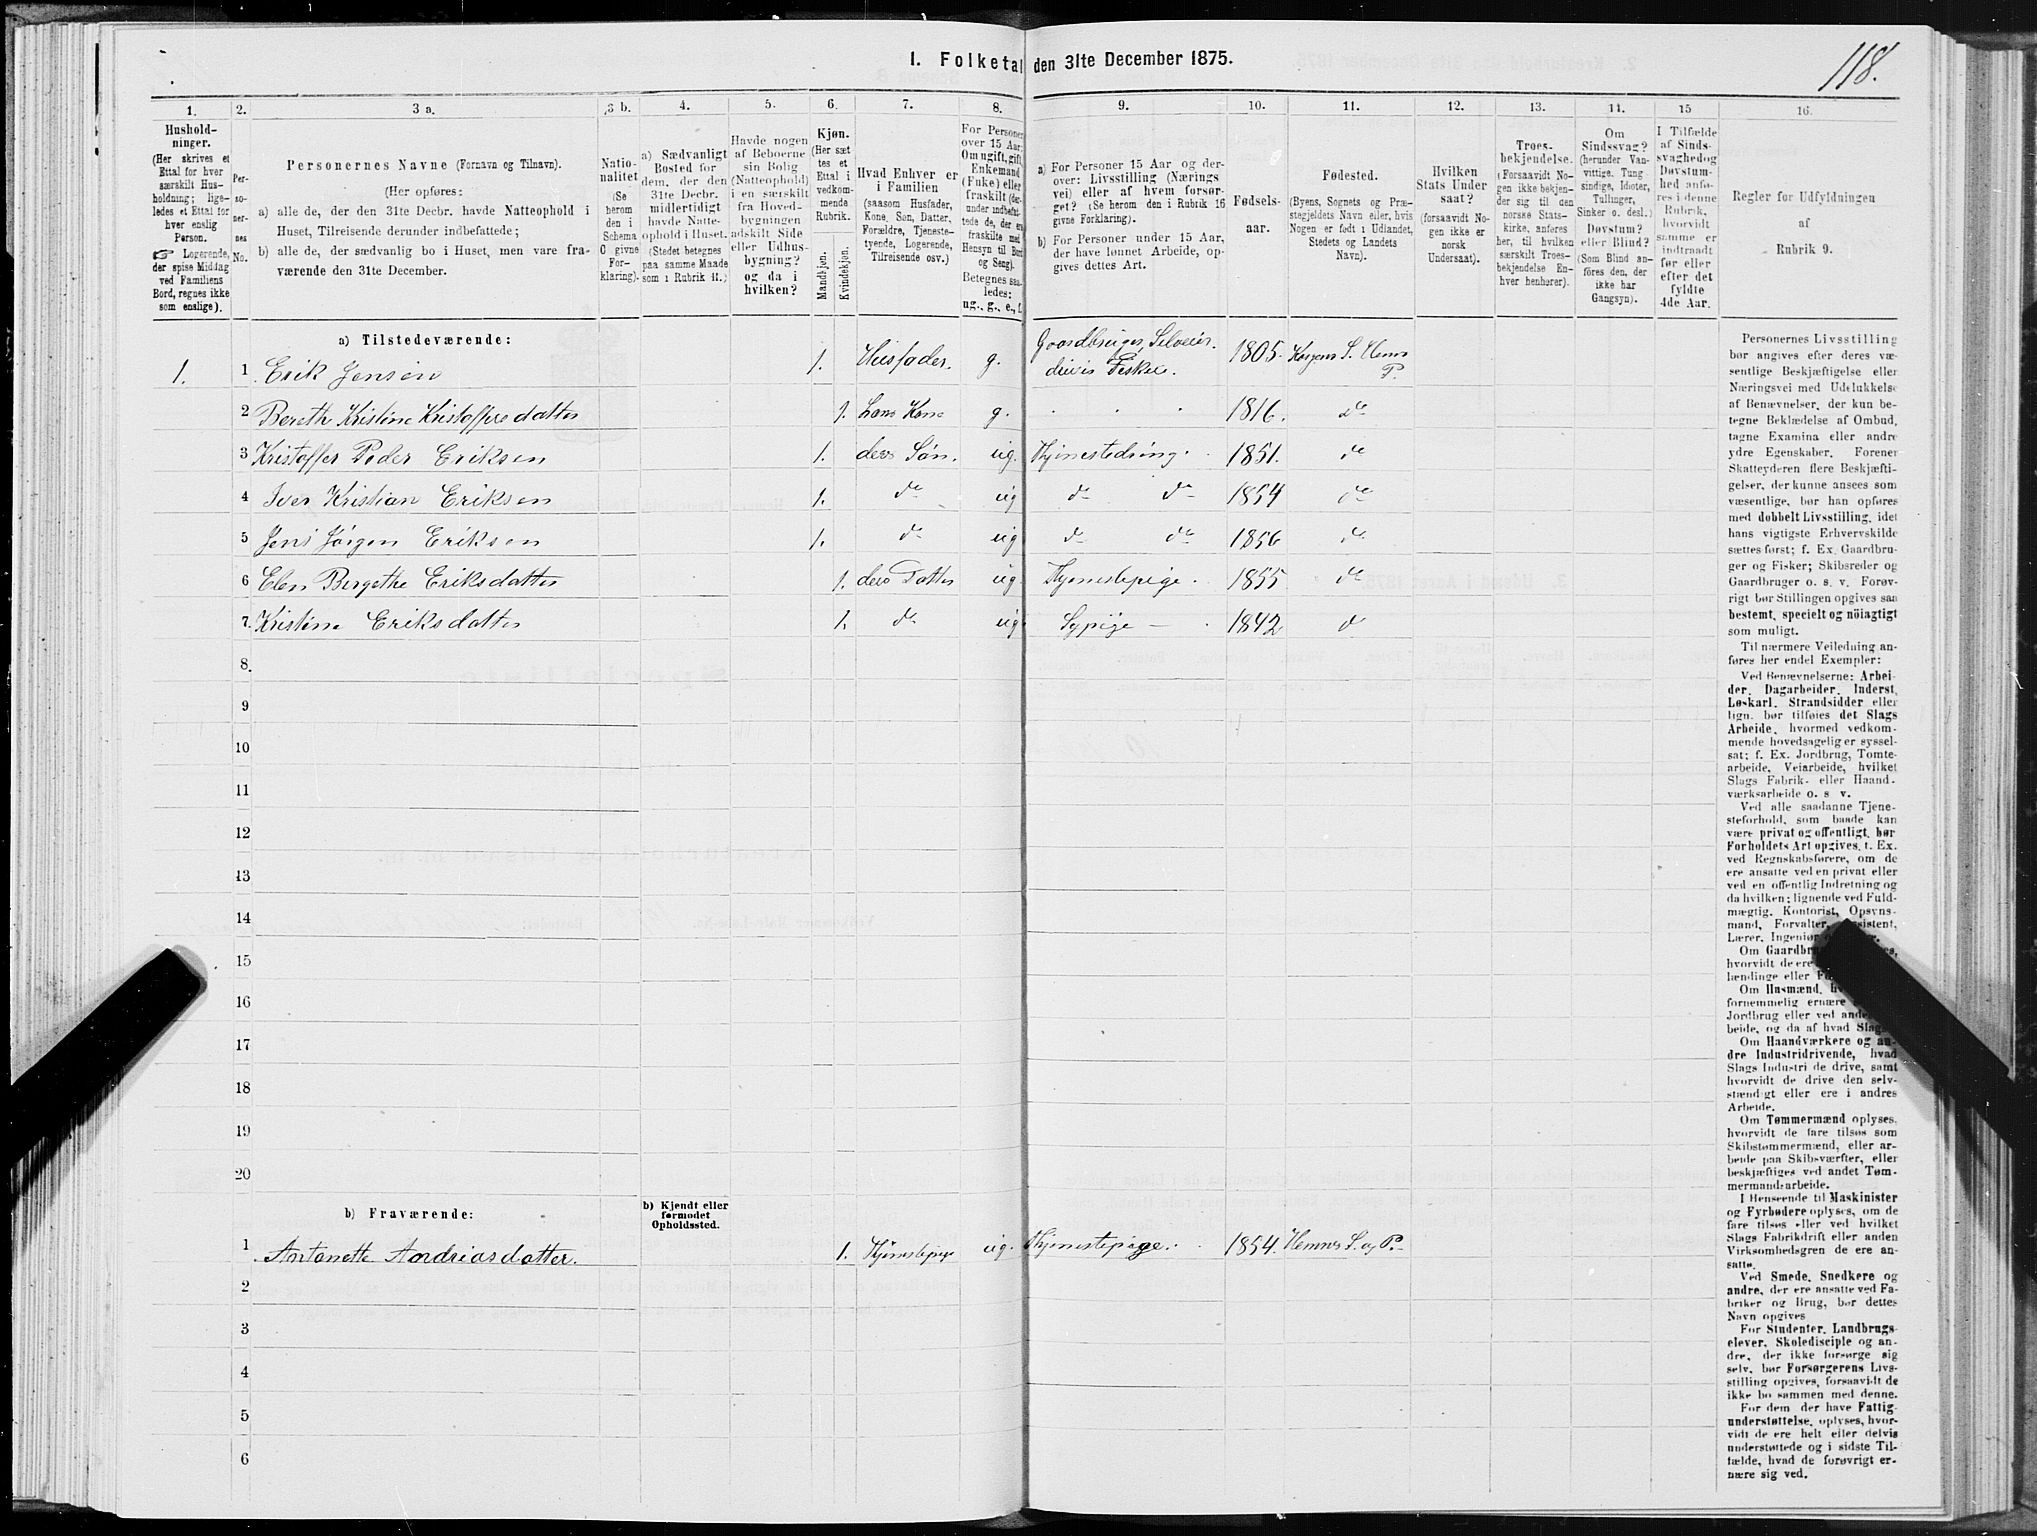 118.
I. Folketal den 31te December 1875.
1. 2. 3 a. 3 b. 4. 5. 6. 7. 8. 9. 10. 11. 12. 13. 14. 15 16.
Hushold-
ninger.
(Her skrives et
Ettal for hver
særskilt Hus-
holdning; lige-
ledes et Ettal for
hver enslig
Person.
☞ Logerende,
der spise Middag
ved Familiens
Bord, regnes ikke
som enslige).
Per-
so-
ner-
nes
No.
Personernes Navne (Fornavn og Tilnavn).
(Her opføres:
a) alle de, der den 31te Decbr. havde Natteophold i
Huset, Tilreisende derunder indbefattede;
b) alle de, der sædvanlig bo i Huset, men vare fra-
værende den 31te December.
Natio-
nalitet
(Se
herom
den i
Schema
O givne
For-
klaring).
a) Sædvanligt
Bosted for
dem, der den
31te Decbr.
midlertidigt
havde Natte-
ophold i Huset.
(Stedet betegnes
paa samme Maade
som i Rubrik 11.)
Havde nogen
af Beboerne
sin Bolig
(Natteophold)
i en særskilt
fra Hoved-
bygningen
adskilt Side
eller Udhus-
bygning?
og da i
hvilken?
Kjøn.
(Her sæt
tes et
Ettal i
vedkom-
mende
Rubrik.
Mandkjøn.
Kvindekjøn.
Hvad Enhver er
i Familien
(saasom Husfader,
Kone, Søn, Datter,
Forældre, Tjeneste-
tyende, Logerende,
Tilreisende osv.)
For Personer
over 15 Aar:
Om ugift, gift,
Enkemand
(Enke) eller
fraskilt (der-
under indbefat-
tede de, der ere
fraskilte med
Hensyn til Bord
og Seng).
Betegnes saa-
ledes:
ug., g., e., f.
a) For Personer 15 Aar og der-
over: Livsstilling (Nærings
vei) eller af hvem forsør-
get? (Se herom den i Rubrik 16
givne Forklaring).
b) For Personer under 15 Aar,
der have lønnet Arbeide, op-
gives dettes Art.
Fødsels-
aar.
Fødested.
(Byens, Sognets og Præ-
stegjeldets Navn eller, hvis
Nogen er født i Udlandet,
Stedets og Landets
Navn).
Hvilken
Stats Under
saat?
(forsaavidt No-
gen ikke er
norsk
Undersaat).
Troes-
bekjendelse.
(Forsaavidt No-
gen ikke bekjen-
der sig til den
norske Stats-
kirke, anføres
her, til hvilken
særskilt Troes-
bekjendelse En-
hver henhører).
Om
Sindssvag?
(herunder Van-
vittige, Tung
sindige, Idioter,
Tullinger,
Sinker o. desl.)
Døvstum?
eller Blind?
(Som Blind an-
føres den, der
ikke har
Gangsyn).
I Tilfælde
af Sinds-
svaghed og
Døvstum-
hed anfø-
res i denne
Rubrik,
hvorvidt
samme er
indtraadt
før eller
efter det
fyldte
4de Aar.
Regler for Udfyldningen
af
Rubrik 9.
a) Tilstedeværende:
1. 1 Erik Jensen 1. Husfader. g. Gaardbruger, Selveier. 1805. Korgens S. Hemn
delvis Fisker. P.
2 Bereth Kristine Kristoffersdatter 1. hans Kone g. 1816. do
3 Kristoffer Peder Eriksen 1. deres Søn. ug. Tjenestedreng. 1851. do
4 Iver Kristian Eriksen 1. do ug do do 1854 do
5 Jens Jørgen Eriksen 1. do ug do do 1856 do
6 Elen Bergethe Eriksdatter 1. deres Datter ug. Tjenestepige. 1855 do
7. Kristine Eriksdatter 1. do ug Sypige 1842 do
8.
9
10
11
12
13
14
15
16
17
18
19
20
b) Fraværende:
b) Kjendt eller
formodet
Opholdssted.
1 Antonette Andriasdatter. 1. Tjenestepige ug. Tjenestepige. 1854. Hemnes S. og P.
2
3
4
5
6
Personernes Livsstilling
bør angives efter deres væ-
sentlige Beskjæftigelse eller
Næringsvei med Udelukkelse
af Benævnelser, der kun be-
tegne Beklædelse af Ombud,
tagne Examina eller andre
ydre Egenskaber. Forener
Skatteyderen flere Beskjæfti-
gelser, der kunne ansees som
væsentlige, bør han opføres
med dobbelt Livsstilling, idet
hans vigtigste Erhvervskilde
sættes først; f. Ex. Gaardbru-
ger og Fisker; Skibsreder og
Gaardbruger o. s. v. Forøv-
rigt bør Stillingen opgives saa
bestemt, specielt og nöiagtigt
som muligt.
Til nærmere Veiledning an-
føres her endel Exempler:
Ved Benævnelserne: Arbei-
der, Dagarbeider, Inderst,
Løskarl, Strandsidder eller
lign. bør tilføies det Slags
Arbeide, hvormed vedkom-
mende hovedsagelig er syssel-
sat; f. Ex. Jordbrug, Tomte-
arbeide, Veiarbeide, hvilket
Slags Fabrik- eller Haand-
værksarbeide o. s v.
Ved alle saadanne Tjene-
steforhold, som baade kan
være privat og offentligt, bør
Forholdets Art opgives, f. Ex.
ved Regnskabsførere, om de
ere ansatte ved en privat eller
ved en offentlig Indretning og
da hvilken; lignende ved Fuld-
mægtig, Kontorist, Opsyns-
mand, Forvalter,
Lærer, Ingeniør
Om
hvorvidt de ere
lændinge eller
Om Husmænd,
fornemmelig ernære
Jordbrug eller ved
beide, og da af hvad
Om Haandværkere og an-
dre Industridrivende, hvad
Slags Industri de drive, samt
hvorvidt de drive den selv-
stændigt eller ere i andres
Arbeide.
Om Tømmermænd oplyses,
hvorvidt de fare tilsøs som
Skibstømmermænd, eller ar-
beide paa Skibsværfter, eller
beskjæftiges ved andet Tøm-
mermandsarbeide.
I Henseende til Maskinister
og Fyrbødere oplyses, om de
fare tilsøs eller ved hvilket
Slags Fabrikdrift eller anden
Virksomhedsgren de ere an-
satte.
Ved Smede, Snedkere og
andre, der ere ansatte ved Fa-
briker og Brug, bør dettes
Navn opgives
For Studenter, Landbrugs-
elever, Skoledisciple og an-
dre, der ikke forsørge sig
selv, bør Forsørgerens Livs-
stilling opgives, forsaavidt de
ikke bo sammen med denne.
For dem, der have Fattig-
understøttelse, oplyses, hvor-
vidt de ere helt eller delvis
understøttede og i sidste Til-
fælde, hvad de forøvrigt er-
nære sig ved.